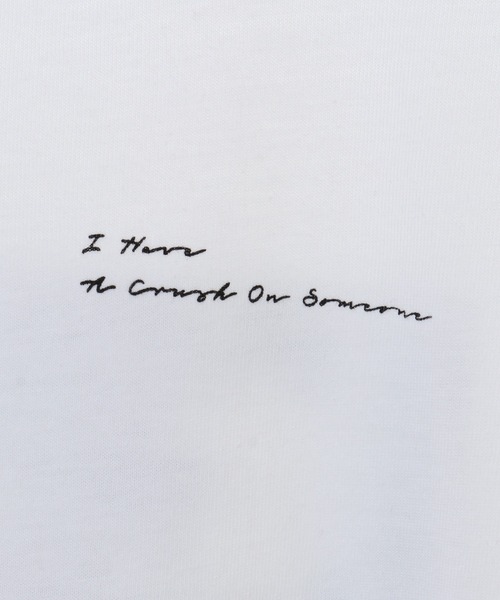 I Have
A Crush On Someone